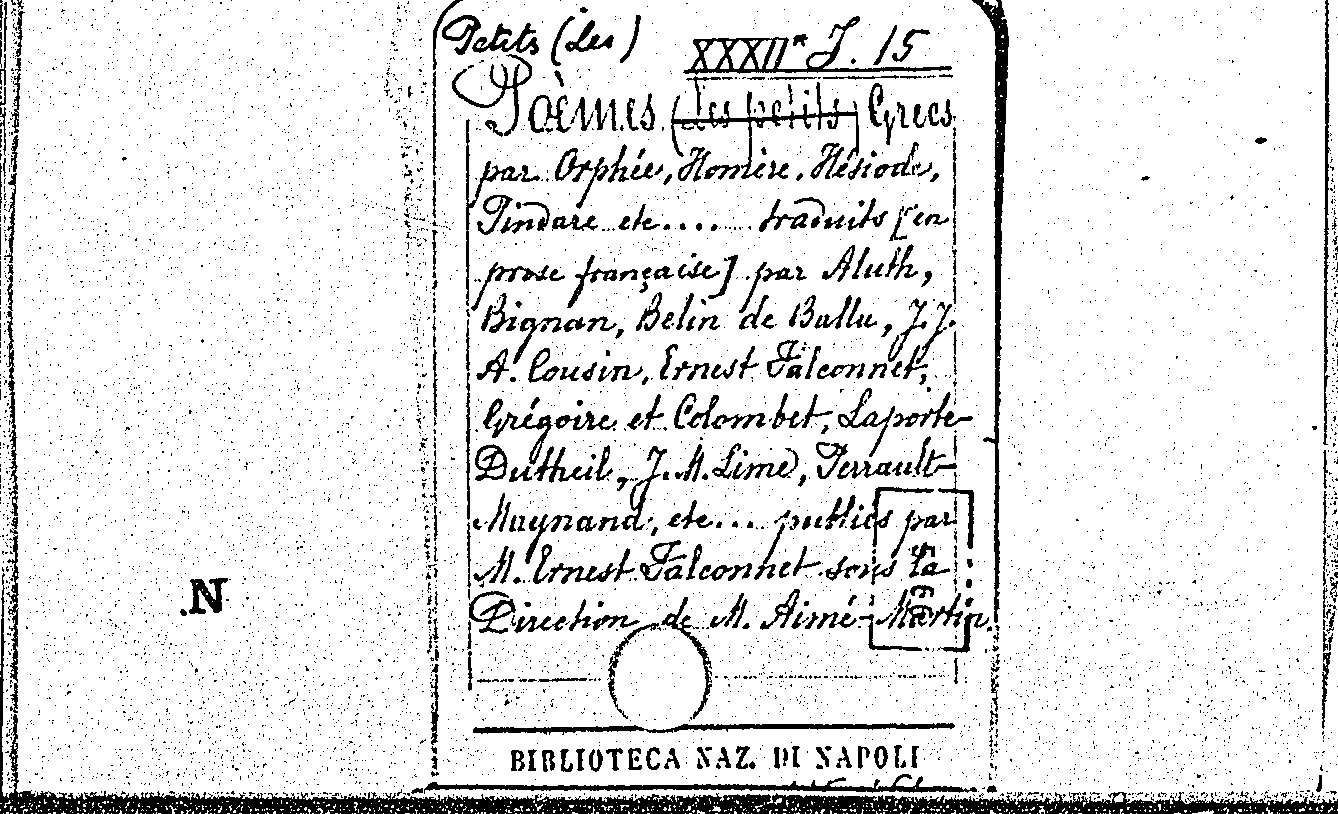 Petits (Les)
XXXII* J. 15
Poèmes (les petits) Grecs
par Orphée, Homère, Hésiode,
Pindare etc.... traduits [en
prose française] par Aluth,
Bignan, Belin de Ballu, J. J.
A. Cousin, Ernest Falconnet,
Grégoire et Colombet, Laporte-
Dutheil, J. M. Limed, Perrault-
Maynand, etc... publiés par
M. Ernest Falconnet sous la
Direction de M. Aimé-Martin.
.N
BIBLIOTECA NAZ. DI NAPOLI